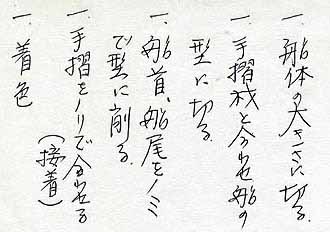 一、船体の大きさに切る。
一 手摺材と合わせ船の
型に切る。
一、船首、船尾をノミ
で型に削る。
一 手摺をノリで合わせる
(接着)
一 着色